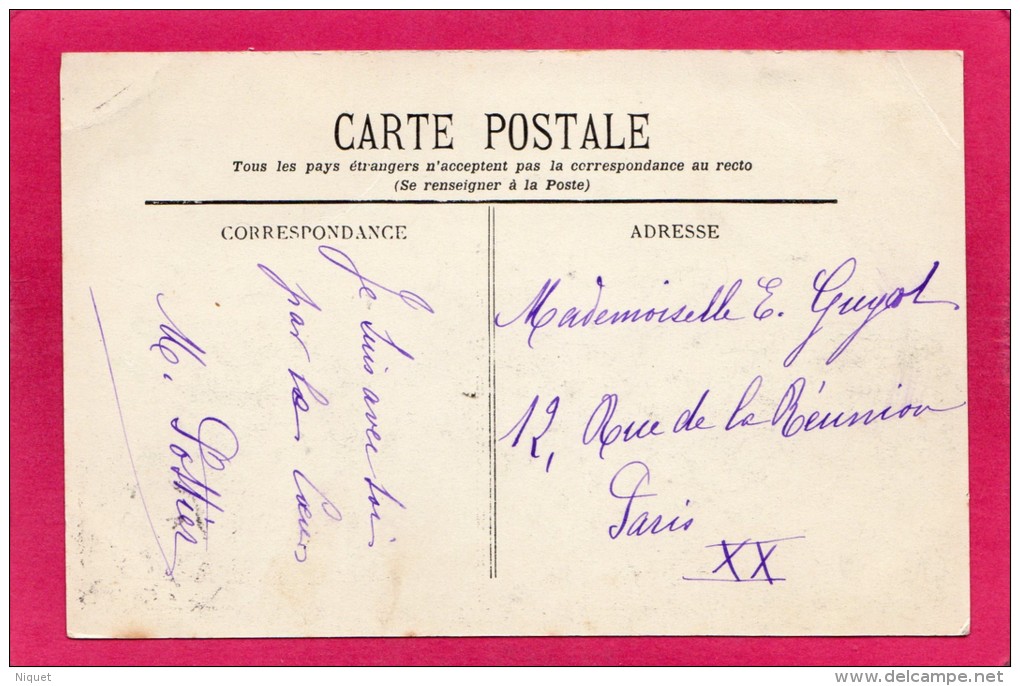 CARTE POSTALE
Tous les pays étrangers n'acceptent pas la correspondance au recto
(Se renseigner à la Poste)
CORRESPONDANCE
Je suis avec toi
par les Cœurs
M. Pottier
ADRESSE
Mademoiselle E. Guyot
12, Rue de la Réunion
Paris
XX
Niquet
delcampe.net